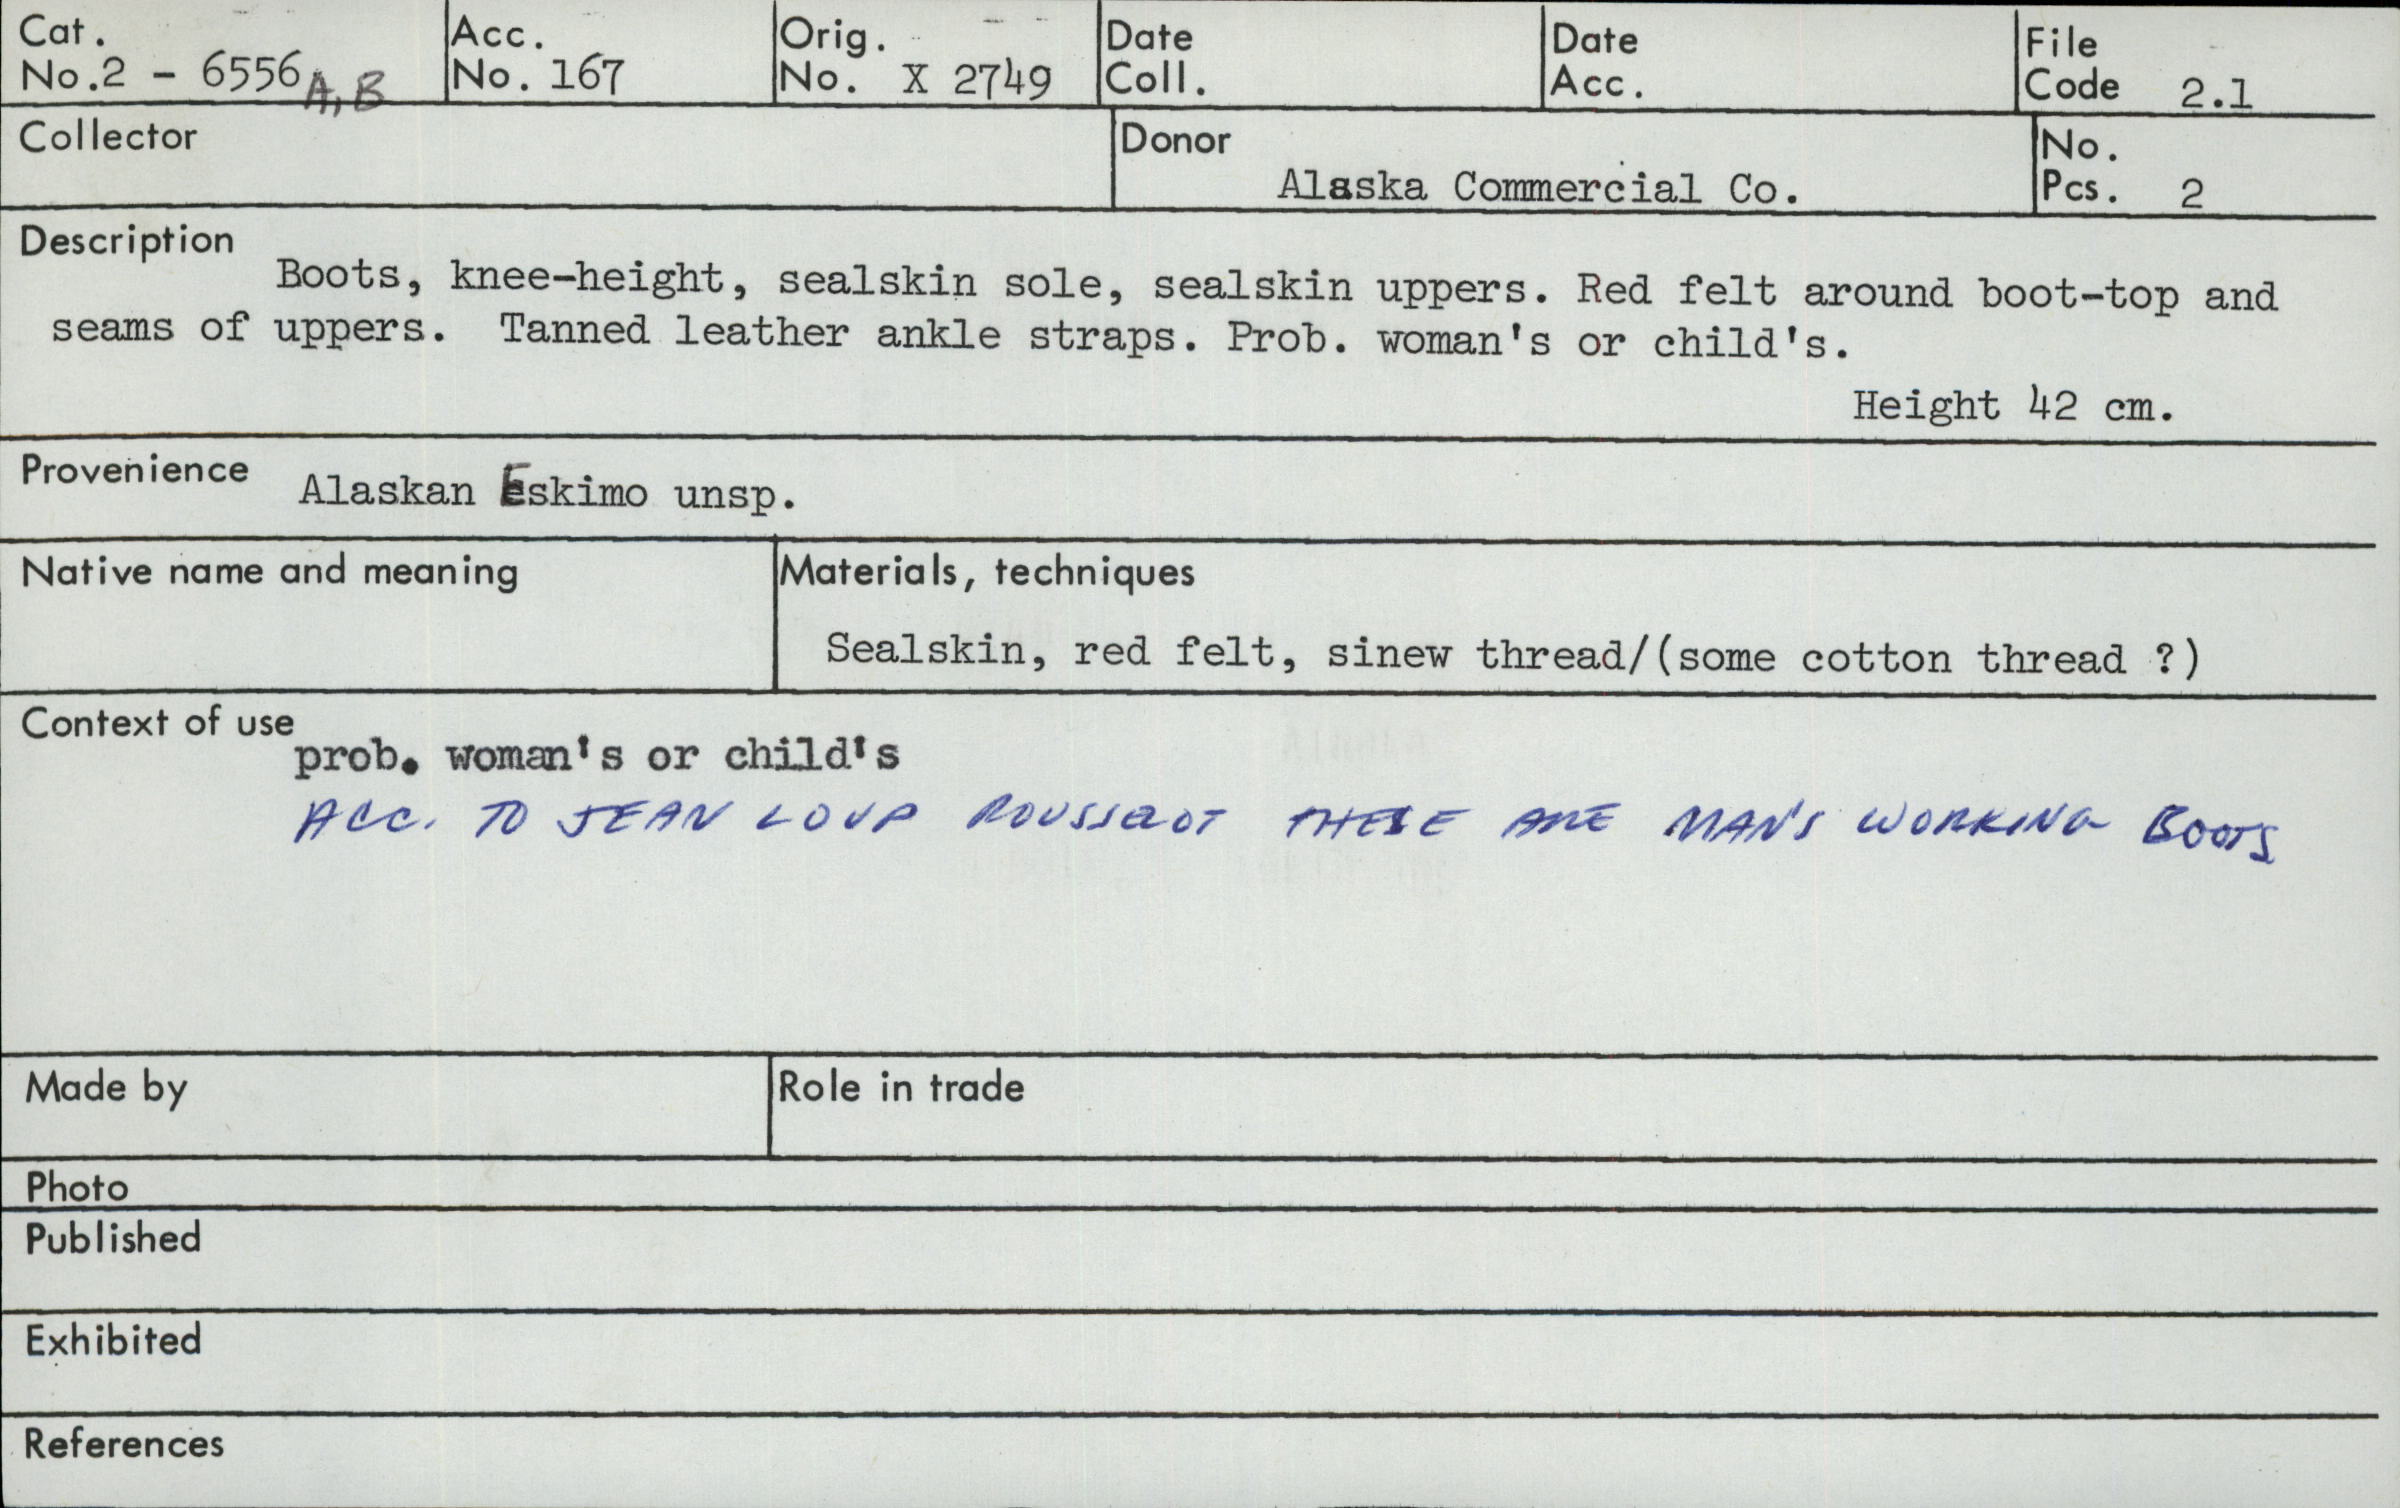 Cat. No. 2 - 6556 A, B
Acc. No. 167
Orig. No. X 2749
Date Coll.
Date Acc.
File Code 2.1
Collector
Donor Alaska Commercial Co.
No. Pcs. 2
Description
Boots, knee-height, sealskin sole, sealskin uppers. Red felt around boot-top and
seams of uppers. Tanned leather ankle straps. Prob. woman's or child's.
Height 42 cm.
Provenience Alaskan Eskimo unsp.
Native name and meaning
Materials, techniques
Sealskin, red felt, sinew thread/(some cotton thread ?)
Context of use
prob. woman's or child's
ACC. TO JEAN LOUP ROUSSELOT THESE ARE MAN'S WORKING BOOTS
Made by
Role in trade
Photo
Published
Exhibited
References